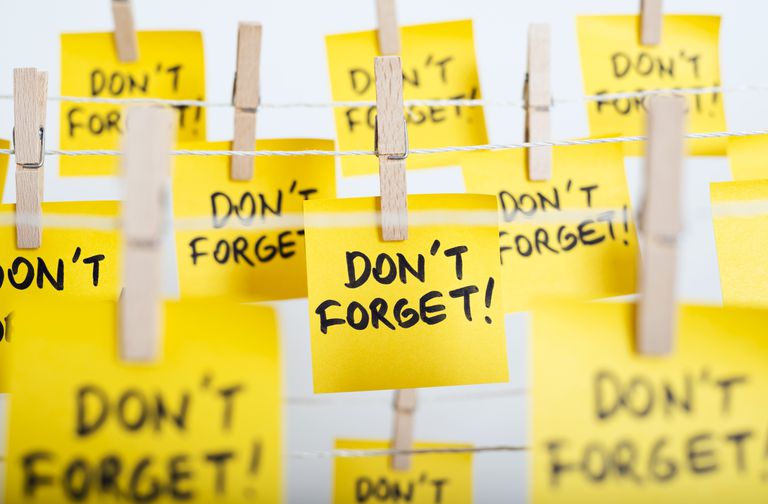 DON'T
FORGET!
DON'T
FORGET!
DON'T
FORGET!
DON'T
FORGET
DON'T
FORGET!
DON'T
DON'T
FORGET!
DON'T
FORGET!
DON'T
FORGET!
DON'T